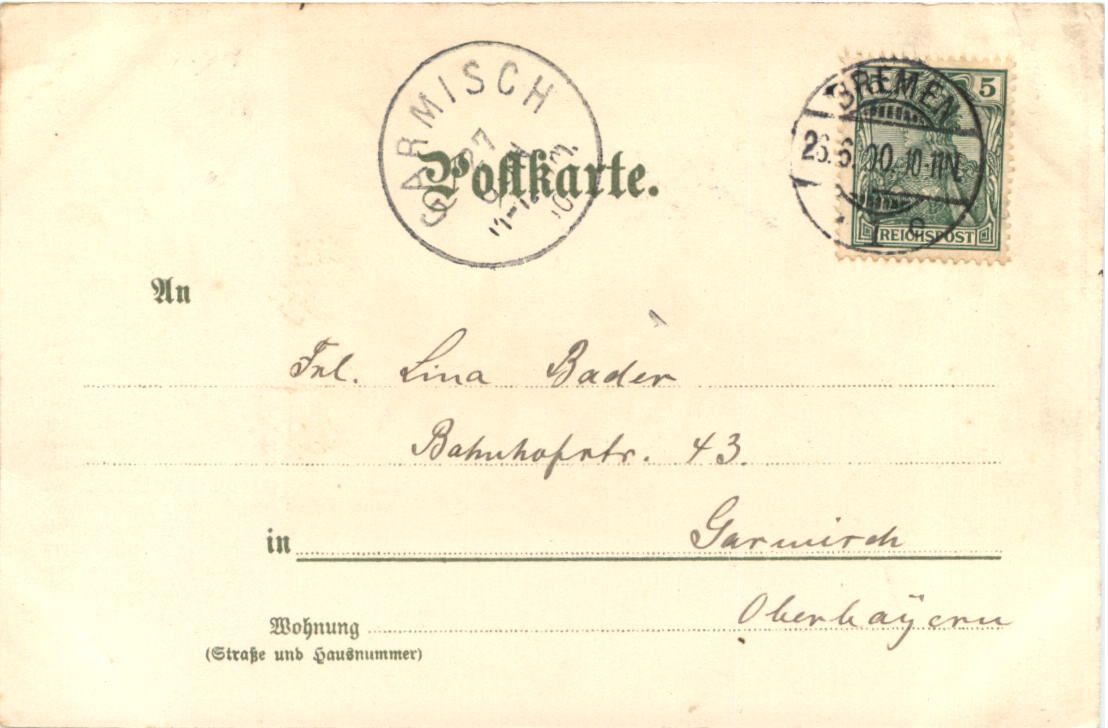 GARMISCH
27
Postkarte.
5
BREMEN
26.6.00. 10-11N.
1 c
REICHSPOST
An
Frl. Lina Bader
Bahnhofstr. 43.
in Garmisch
Wohnung Oberbaÿern
(Straße und Hausnummer)